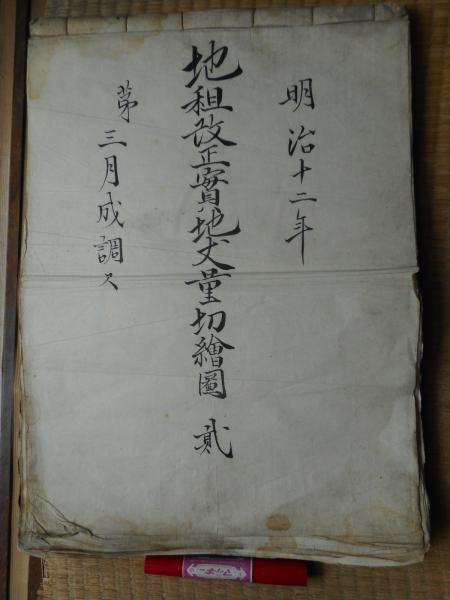 明治十二年
地租改正實地丈量切繪圖 貳
第三月成調之